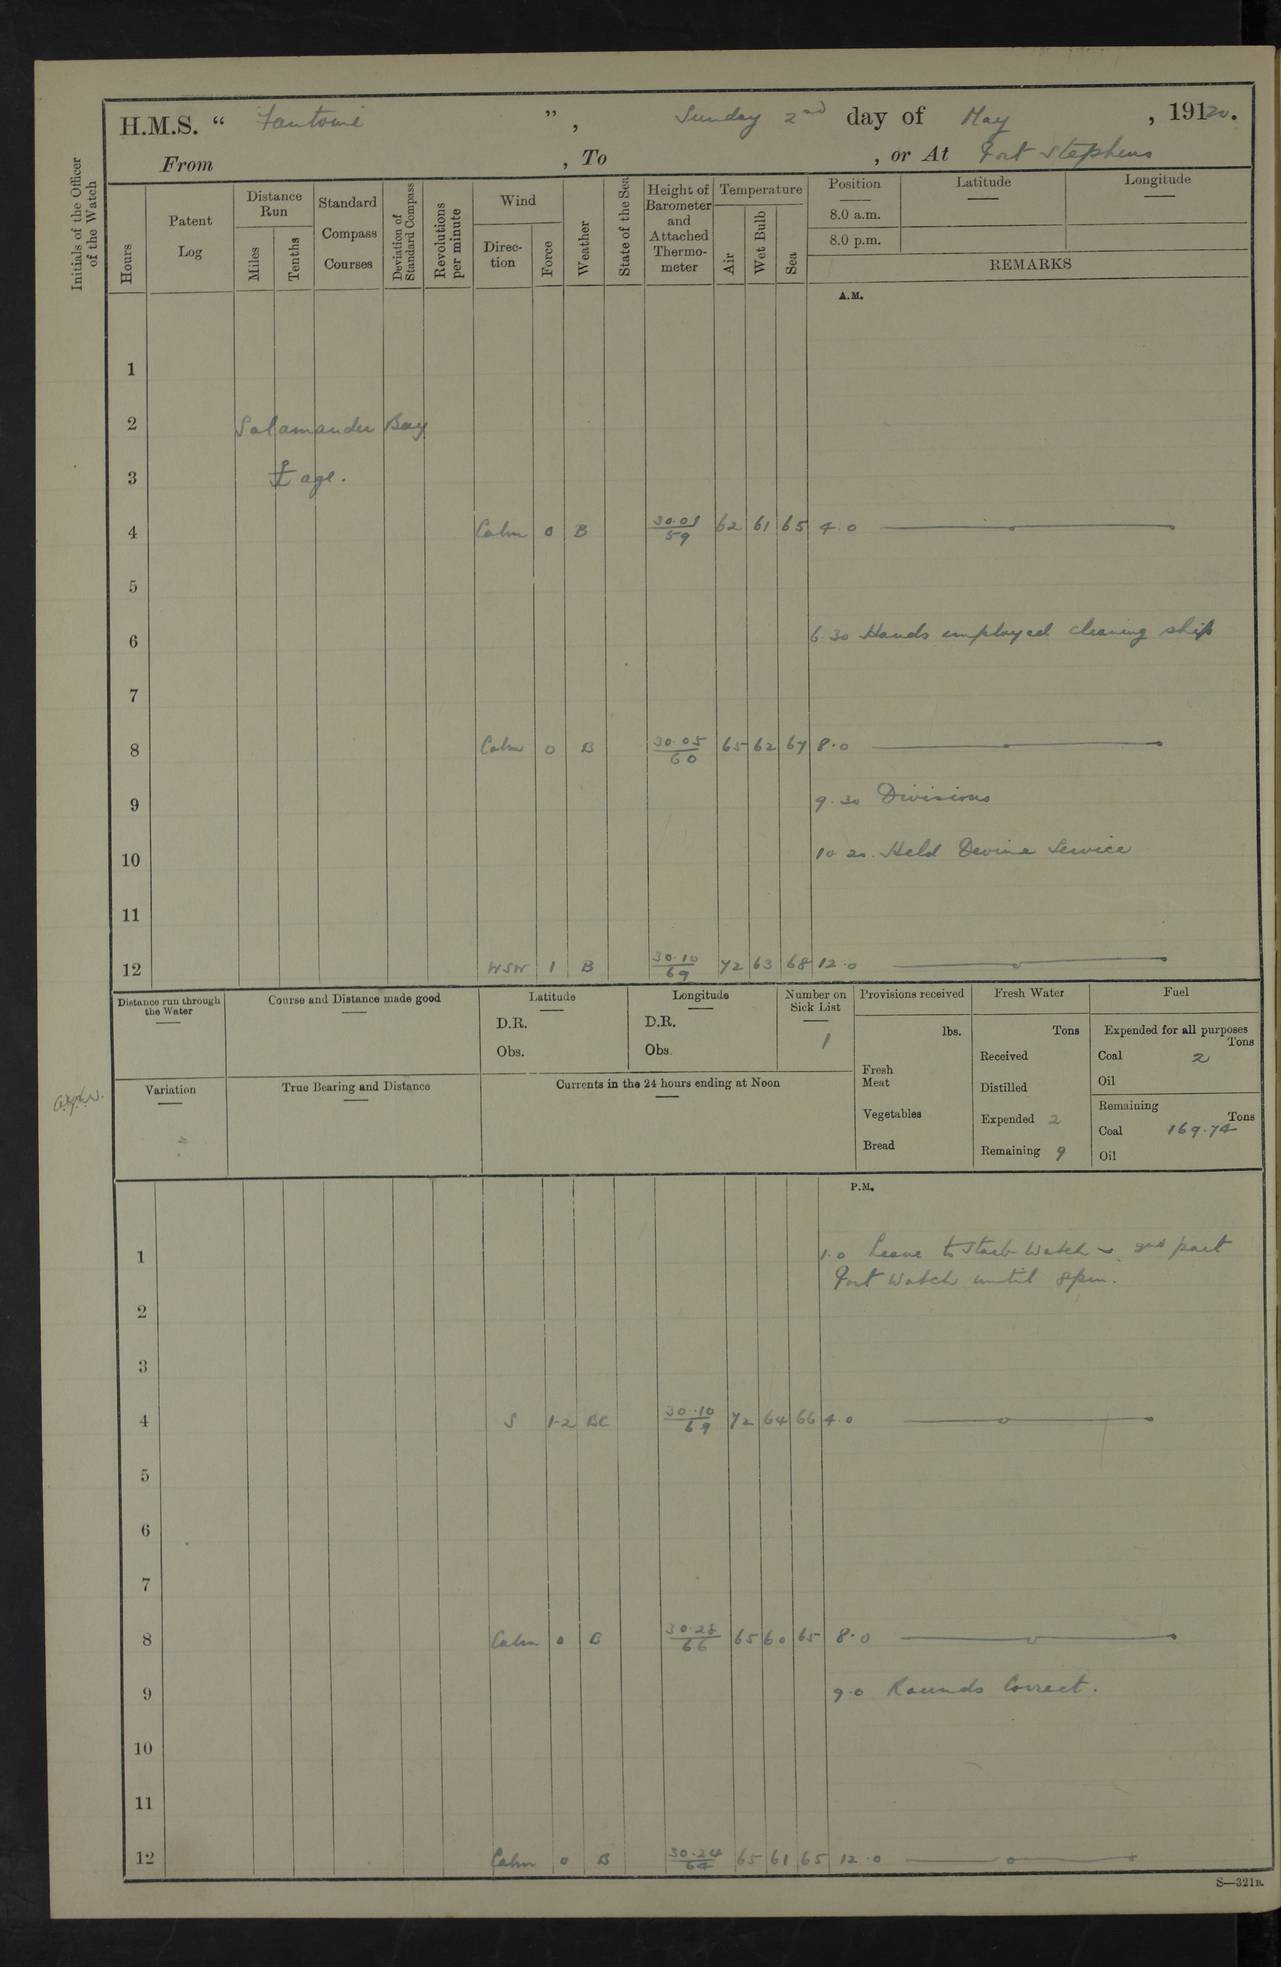 H.M.S. “ Fantome ”, Sunday 2nd day of May, 19120.
From , To , or At Port Stephens
Initials of the Officer of the Watch
Hours
Patent Log
Distance Run
Miles
Tenths
Standard Compass Courses
Deviation of Standard Compass
Revolutions per minute
Wind
Direction
Force
Weather
State of the Sea
Height of Barometer and Attached Thermometer
Temperature
Air
Wet Bulb
Sea
Position
8.0 a.m.
8.0 p.m.
Latitude
Longitude
REMARKS
A.M.
1
2 Salamander Bay
3 ⚓age.
4 Calm 0 B 30.01 59 62 61 65 4.0
5
6 6.30 Hands employed cleaning ship
7
8 Calm 0 B 30.05 60 65 62 67 8.0
9 9.30 Divisions
10 10.20. Held Devine Service
11
12 WSW 1 B 30.10 69 72 63 68 12.0
Distance run through the Water
Course and Distance made good
Latitude
D.R.
Obs.
Longitude
D.R.
Obs.
Number on Sick List
1
Provisions received
lbs.
Fresh Meat
Vegetables
Bread
Fresh Water
Tons
Received
Distilled
Expended 2
Remaining 9
Fuel
Expended for all purposes
Tons
Coal 2
Oil
Remaining
Tons
Coal 169.74
Oil
Variation
True Bearing and Distance
Currents in the 24 hours ending at Noon
P.M.
1 1.0 Leave to Starb Watch & 2nd part
Port Watch until 8pm.
2
3
4 S 1-2 BC 30.10 69 72 64 66 4.0
5
6
7
8 Calm 0 B 30.28 66 65 60 65 8.0
9 9.0 Rounds Correct.
10
11
12 Calm 0 B 30.24 64 65 61 65 12.0
S—321B.